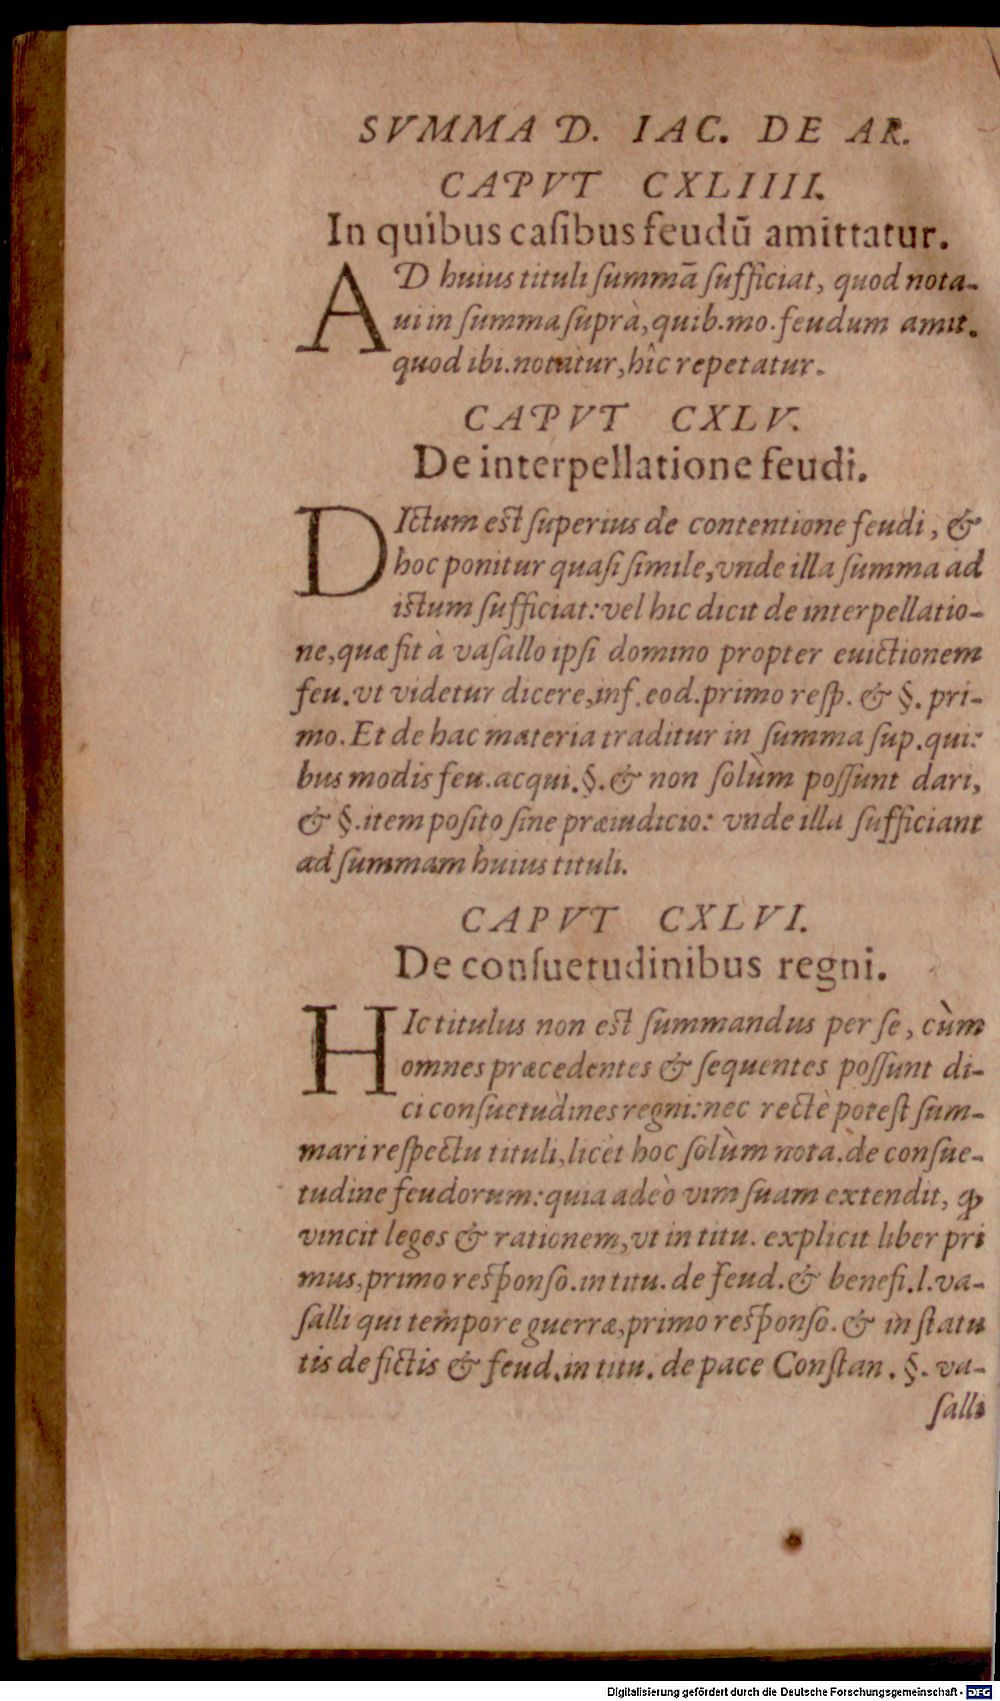 SVMMA D. IAC. DE AR.
CAPVT CXLIIII.
In quibus caſibus feudū amittatur.
AD huius tituli ſummā ſufficiat, quod nota-
ui in ſumma ſuprà, quib. mo. feudum amit.
quod ibi. notatur, hîc repetatur.
CAPVT CXLV.
De interpellatione feudi.
DIctum est ſuperius de contentione feudi, &
hoc ponitur quaſi ſimile, vnde illa ſumma ad
istum ſufficiat: vel hic dicit de interpellatio-
ne, quæ fit à vaſallo ipſi domino propter euictionem
feu. vt videtur dicere, inf. eod. primo reſp. & §. pri-
mo. Et de hac materia traditur in ſumma ſup. qui-
bus modis feu. acqui. §. & non ſolùm poſſunt dari,
& §. item poſito ſine præiudicio: vnde illa ſufficiant
ad ſummam huius tituli.
CAPVT CXLVI.
De conſuetudinibus regni.
HIc titulus non est ſummandus per ſe, cùm
omnes præcedentes & ſequentes poſſunt di-
ci conſuetudines regni: nec rectè poteſt ſum-
mari reſpectu tituli, licèt hoc ſolùm nota. de conſue-
tudine feudorum: quia adeò vim ſuam extendit, ꝙ
vincit leges & rationem, vt in titu. explicit liber pri
mus, primo responſo. in titu. de feud. & benefi. l. va-
ſalli qui tempore guerræ, primo responſo. & in ſtatu
tis de fictis & feud. in titu. de pace Conſtan. §. va-
ſalli
Digitalisierung gefördert durch die Deutsche Forschungsgemeinschaft - DFG